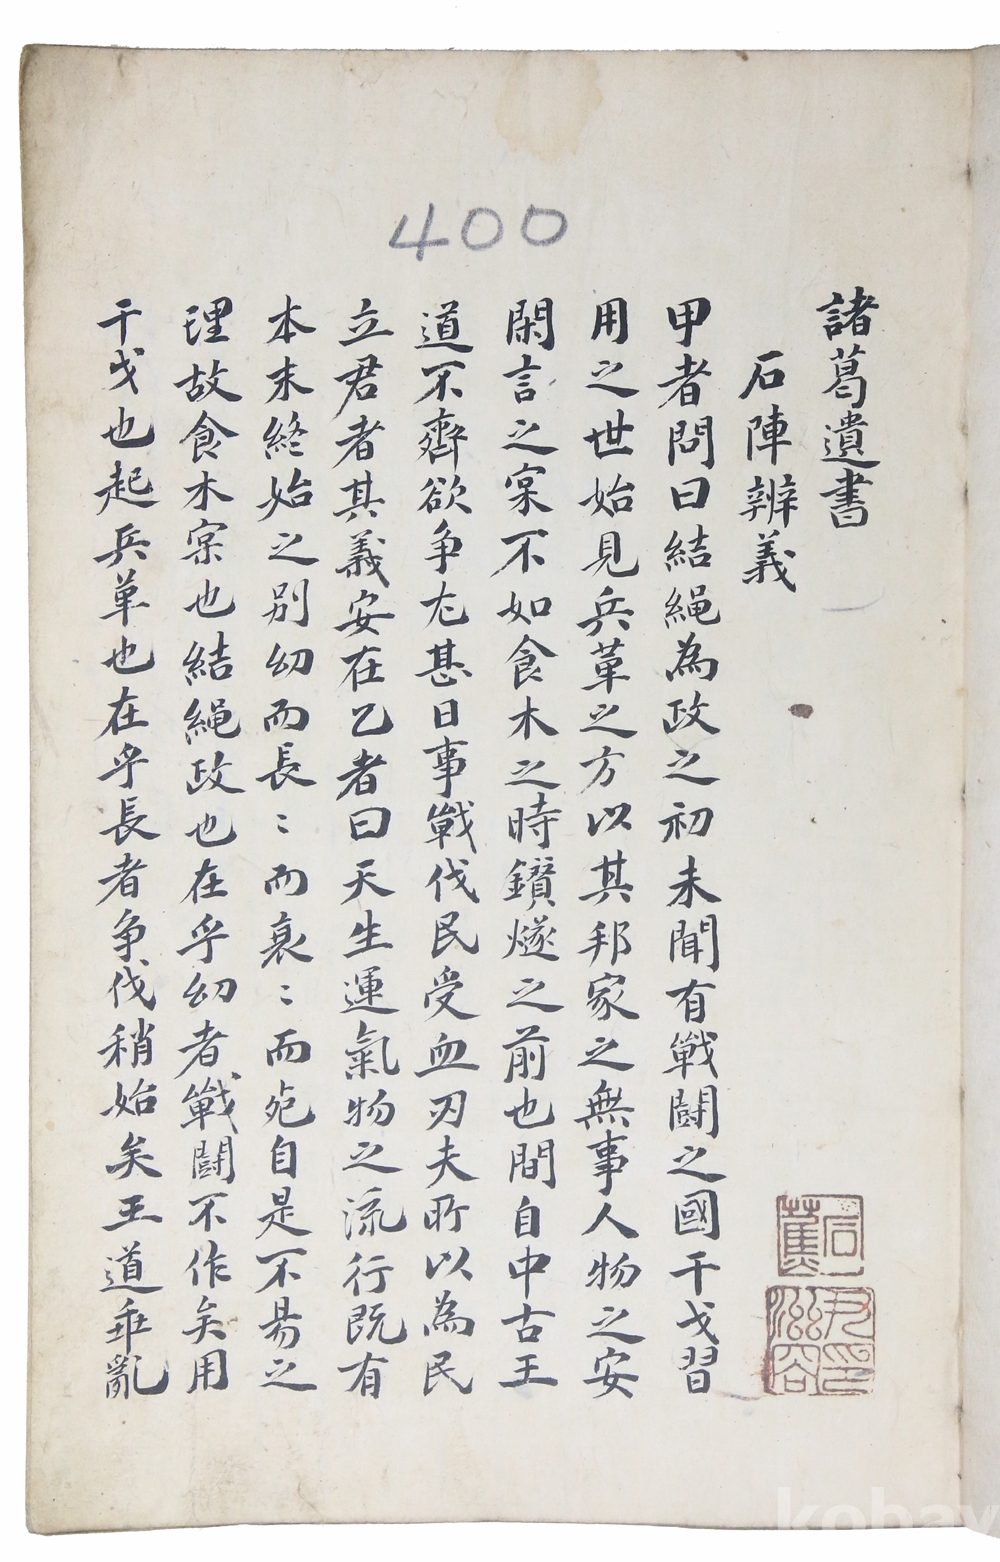 400
諸葛遺書
石陣辨義
甲者問曰結繩為政之初未聞有戰鬪之國干戈習
用之世始見兵革之方以其邦家之無事人物之安
閑言之寀不如食木之時鑚燧之前也間自中古王
道不齊欲争尤甚日事戰伐民受血刃夫所以為民
立君者其義安在乙者曰天生運氣物之流行既有
本末終始之別幼而長〻而衰〻而死自是不易之
理故食木寀也結繩政也在乎幼者戰鬪不作矣用
干戈也起兵革也在乎長者争伐稍始矣王道乖亂
kobay